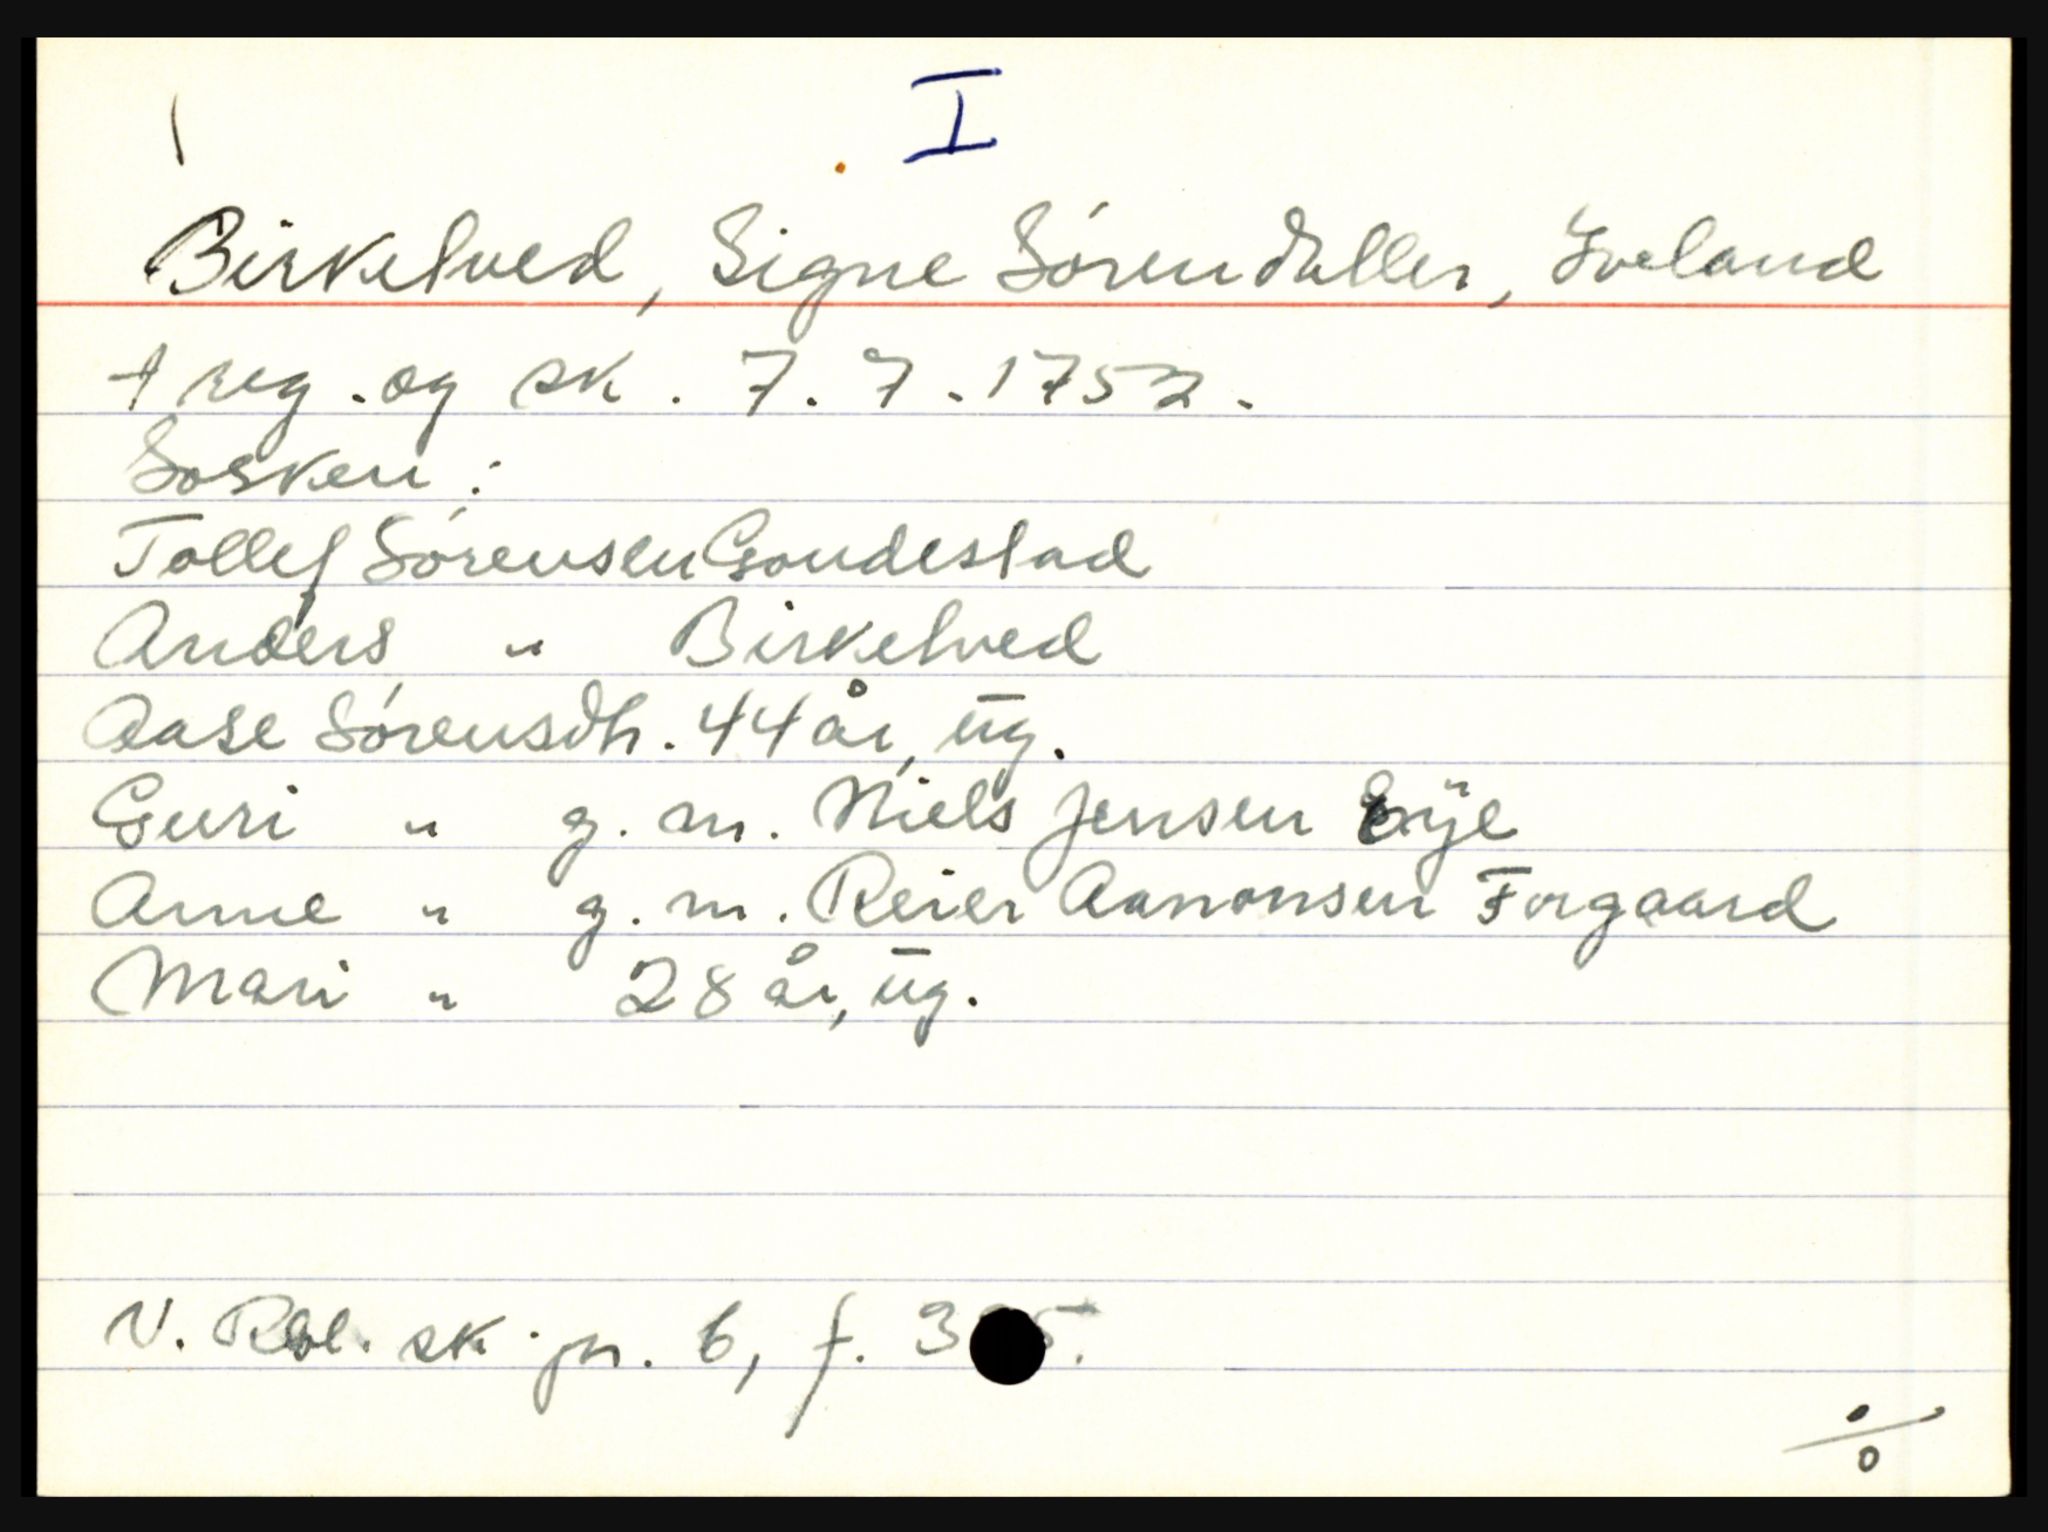 I
Birketved, Signe Sørendatter, Iveland
† reg. og sk. 7.7.1752.
Søsken:
Tollef Sørensen Goudestad
Anders " Birketved
Aase Sørensdtr. 44 år, ug.
Guri " g. m. Niels Jensen Eÿe
Anne " g. m. Reier Aanonsen Forgaard
Mari " 28 år, ug.
N. Rbl. sk. pr. 6, f.